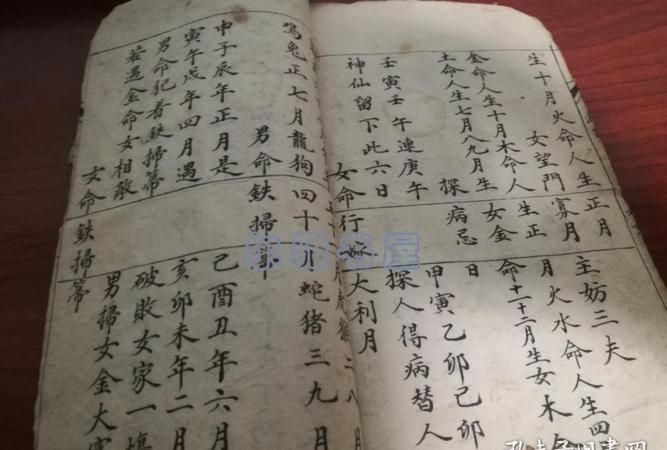 生十月火命人生正月
女望門寡
主妨三夫
金命人生十月木命人生正月火水命人生四
土命人生七月八九月生女金命十一十二月生女木
探病忌日
壬寅壬午連庚午
甲寅乙卯己卯
神仙留下此六日
探人得病替人
女命行嫁大利月
二八月
鷄兔正七月龍狗四十月蛇猪三九月
男命鉄掃箒
申子辰年正月是
己酉丑年六月
寅午戌年四月遇
亥卯未年二月
男命犯着鉄掃箒
破敗女家一
若遇金命女相敵
男掃女金大
女命鉄掃箒